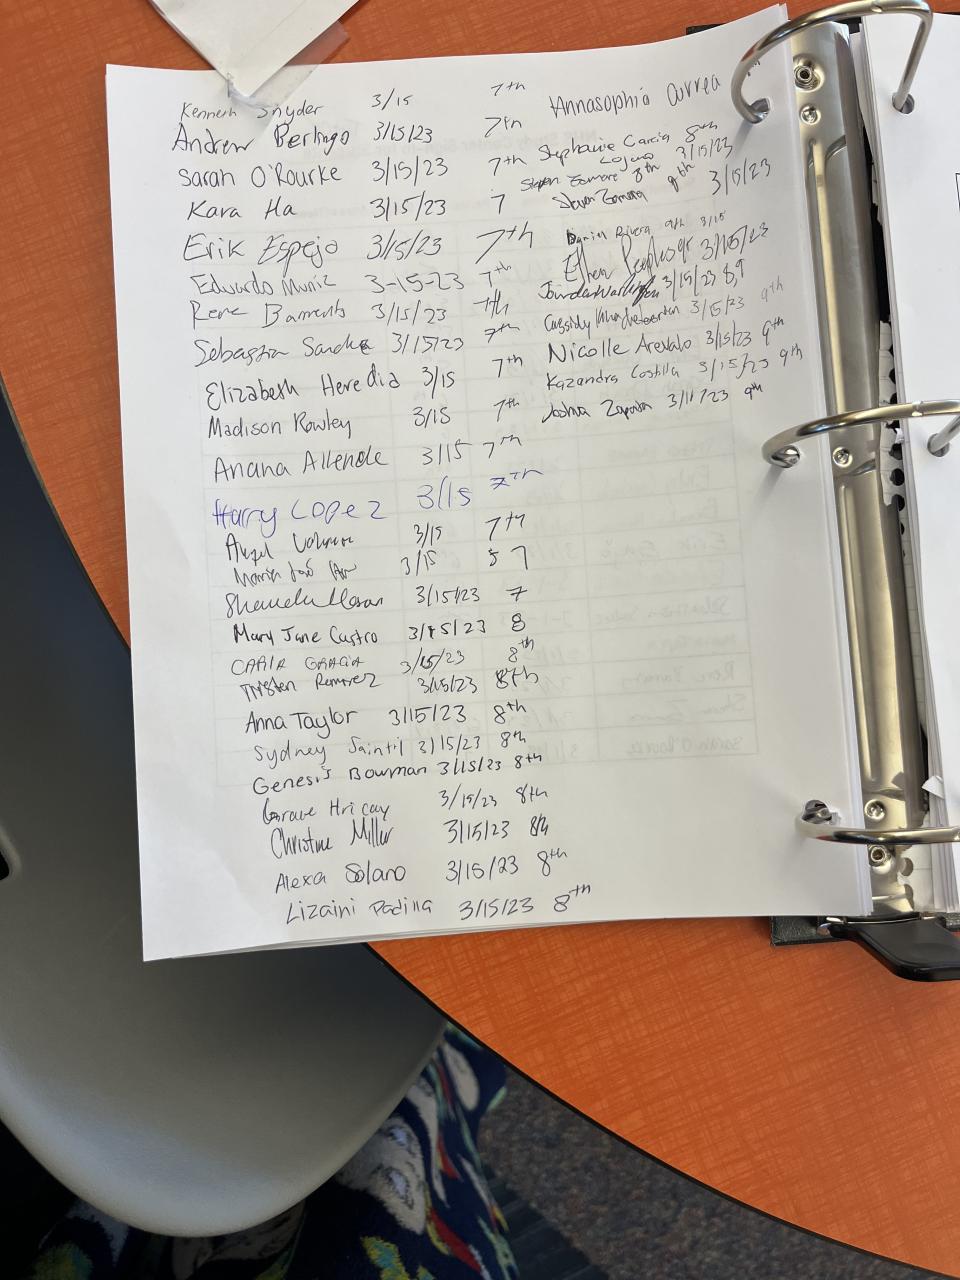 Kenneth Snyder 3/15 7th
Andrew Berlingo 3/15/23 7th
Sarah O'Rourke 3/15/23 7th
Kara Ha 3/15/23 7
Erik Espejo 3/15/23 7th
Eduardo Muñiz 3-15-23 7th
Rene Barrients 3/15/23 7th
Sebastian 3/15/23 7th
Elizabeth Heredia 3/15 7th
Madison Rowley 3/15 7th
Ariana Allende 3/15 7th
Harry Lopez 3/15 7th
Angel 3/15 7th
Maria José 3/15 7
3/15/23 7
Mary Jane Castro 3/15/23 8
CARLA GRACIA 3/15/23 8th
Tristen Ramirez 3/15/23 8th
Anna Taylor 3/15/23 8th
Sydney Saintil 3/15/23 8th
Genesis Bowman 3/15/23 8th
Grace Hricay 3/15/23 8th
Christine Miller 3/15/23 8th
Alexa Solano 3/15/23 8th
Lizaini Padilla 3/15/23 8th
Annasophia Currea
Stephanie Garcia 8th
Lozano 3/15/23
8th
Steven Zamora 9th 3/15/23
Daniel Rivera 9th 3/15
3/15/23
3/15/23
Cassidy 3/15/23 9th
Nicolle Arevalo 3/15/23 9th
Kazandra Costilla 3/15/23 9th
Joshua Zapata 3/15/23 9th